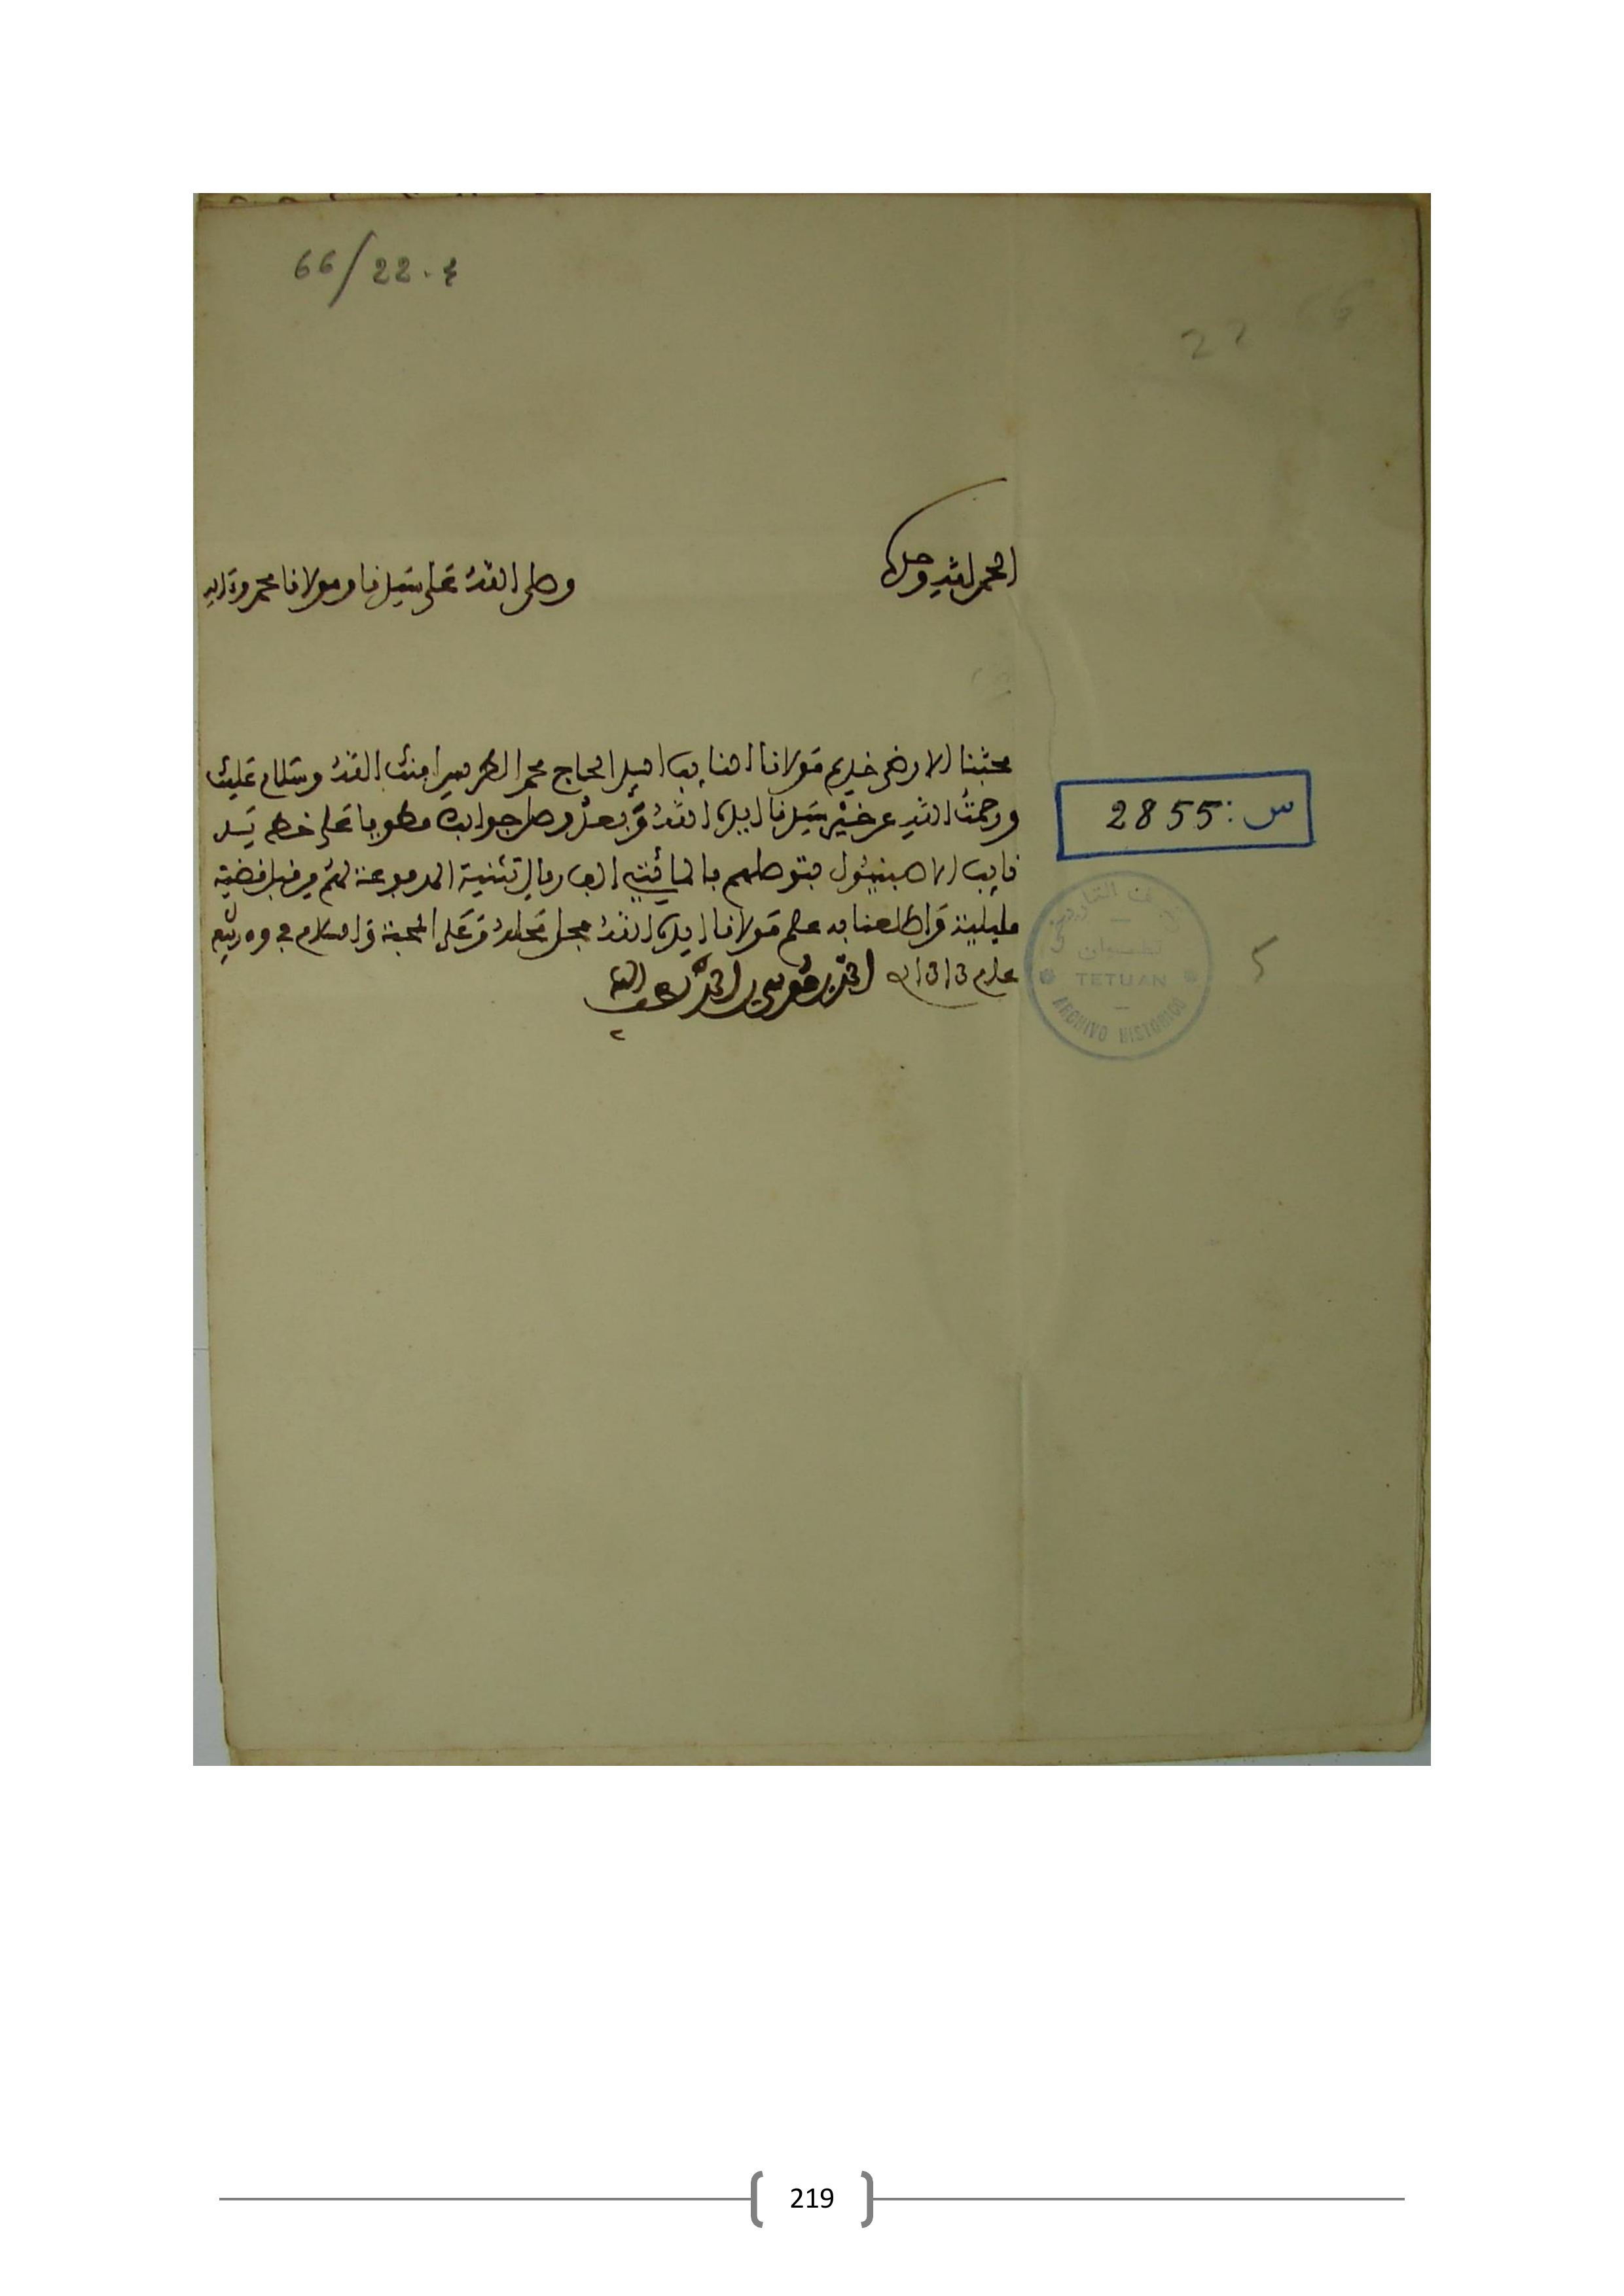 66/22.4
22 66
الحمد لله وحده
وصلى الله على سيدنا ومولانا محمد وءاله
محبنا الارضى خديم مولانا النايب السيد الحاج محمد الطريس امنك الله وسلام عليك
ورحمة الله عن خير سيدنا ايده الله وبعد وصل جوابك مطويا على خط يد
نايب الاصبنيول بتوصلهم بالمائتي الف ريال تثنية المدفوعة لهم من قبل قضية
مليلية واطلعنا به علم مولانا ايده الله فحل محله وعلى المحبة والسلام في وه ربيع
عام 1313 احمد بن موسى بن احمد لطف الله به
س: 2855
تطوان
TETUAN
ARCHIVO HISTORICO
5
219